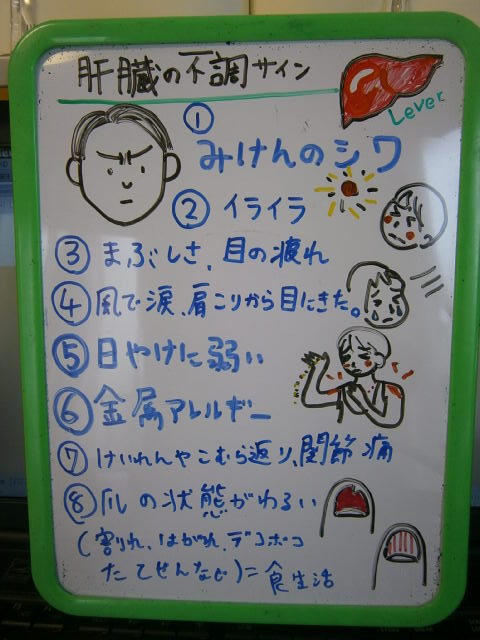 肝臓の不調サイン
Lever
① みけんのシワ
② イライラ
③ まぶしさ、目の疲れ
④ 風で涙、肩こりから目にきた。
⑤ 日やけに弱い
⑥ 金属アレルギー
⑦ けいれんやこむら返り、関節痛
⑧ 爪の状態がわるい
(割れ、はがれ、デコボコ
たてせんなど)=食生活